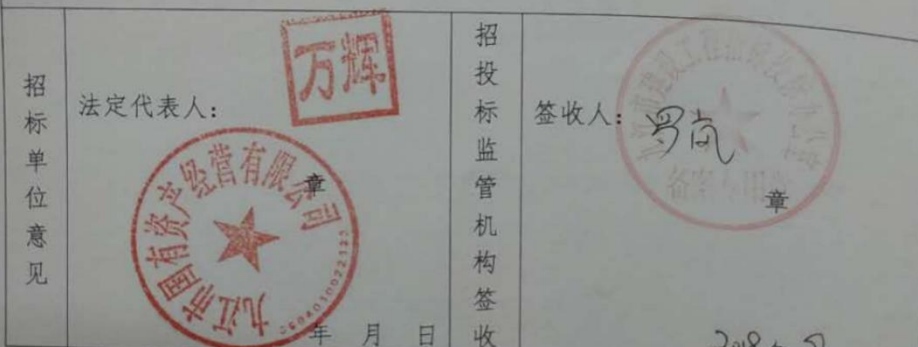 招标单位意见
法定代表人：
万辉
章
九江市国有资产经营有限公司
年 月 日
招投标监管机构签收
签收人：
罗岚
章
备案专用章